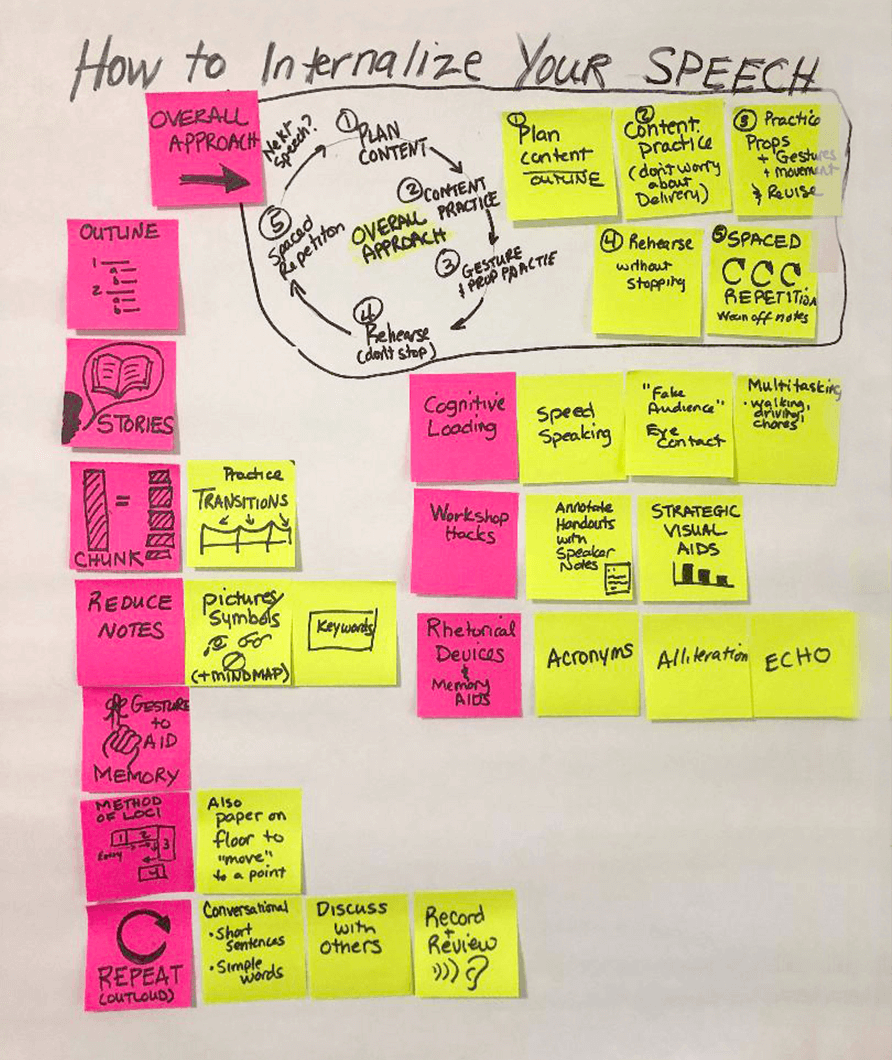 How to Internalize Your SPEECH
OVERALL
APPROACH
Next
Speech?
① PLAN
CONTENT
② CONTENT
PRACTICE
③ GESTURE
& PROP PRACTIE
④
Rehearse
(don't stop)
⑤
Spaced
Repetiton
OVERALL
APPROACH
①
Plan
content
OUTLINE
②
Content
practice
(don't worry
about
Delivery)
③ Practice
Props
+ Gestures
+ movement
& Revise
④ Rehearse
without
stopping
⑤ SPACED
REPETITION
Wean off notes
OUTLINE
1
a
b
2
a
b
STORIES
=
CHUNK
Practice
TRANSITIONS
REDUCE
NOTES
pictures/
Symbols
(+MINDMAP)
Keywords
GESTURE
to
AID
MEMORY
METHOD
OF LOCI
1 2 3
Entry
4
Also
paper on
floor to
"move"
to a point
REPEAT
(OUTLOUD)
Conversational
• Short
sentences
• Simple
words
Discuss
with
others
Record
+
Review
Cognitive
Loading
Speed
Speaking
"Fake
Audience"
Eye
Contact
Multitasking
• walking,
driving,
chores
Workshop
Hacks
Annotate
Handouts
with
Speaker
Notes
STRATEGIC
VISUAL
AIDS
Rhetorical
Devices
&
Memory
AIDS
Acronyms
Alliteration
ECHO